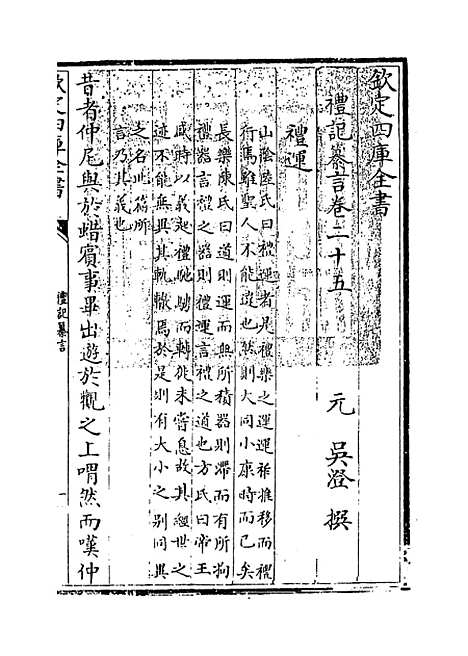 欽定四庫全書
禮記纂言卷二十五
元 吳澄 撰
禮運
山陰陸氏曰禮運者凡禮樂之運運祚推移而禮
行焉雖聖人不能違也然則大同小康時而已矣
長樂陳氏曰道則運而無所積器則滯而有所拘
禮器言禮之器則禮運言禮之道也方氏曰帝王
咸時以義起禮馳騁而轉徙未嘗息故其經世之
迹不能無異其軌轍焉於是則有大小之别同異
之名此篇所
言乃其義也
昔者仲尼與於蜡賓事畢出遊於觀之上喟然而嘆仲
欽定四庫全書
禮記纂言
一